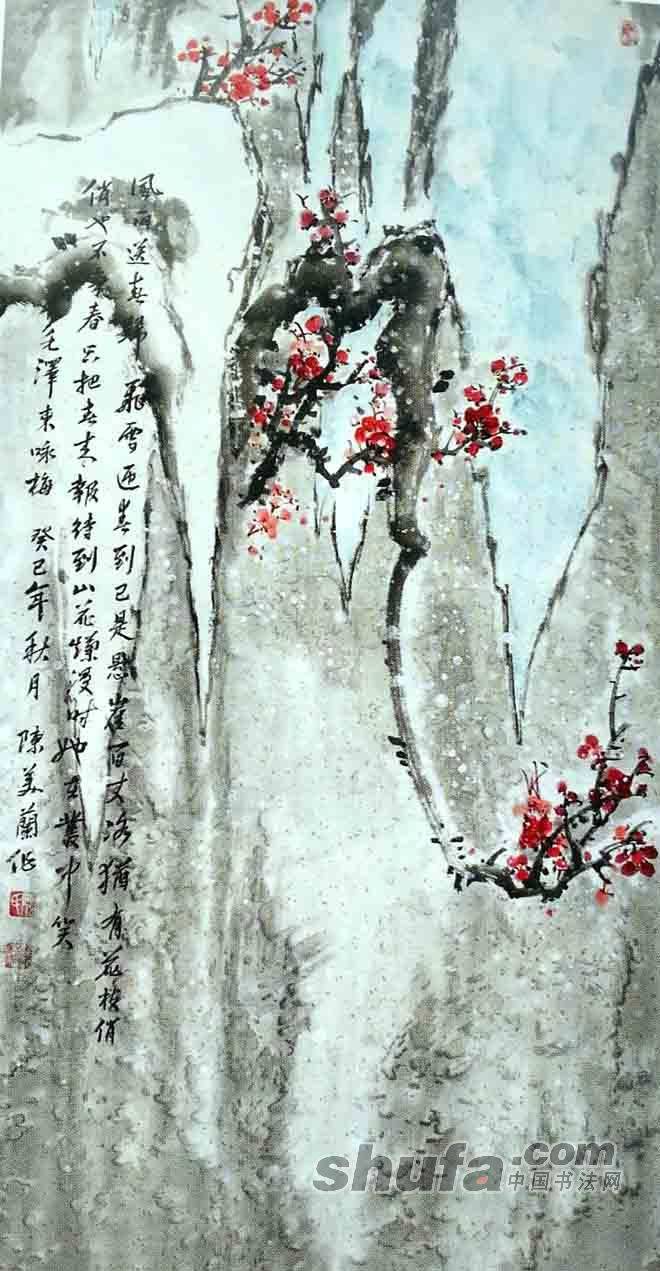 風雨送春歸 飛雪迎春到已是懸崖百丈冰猶有花枝俏
俏也不爭春只把春來報待到山花爛漫时她在叢中笑
毛澤東咏梅 癸巳年秋月 陳美蘭作
shufa.com
中国书法网